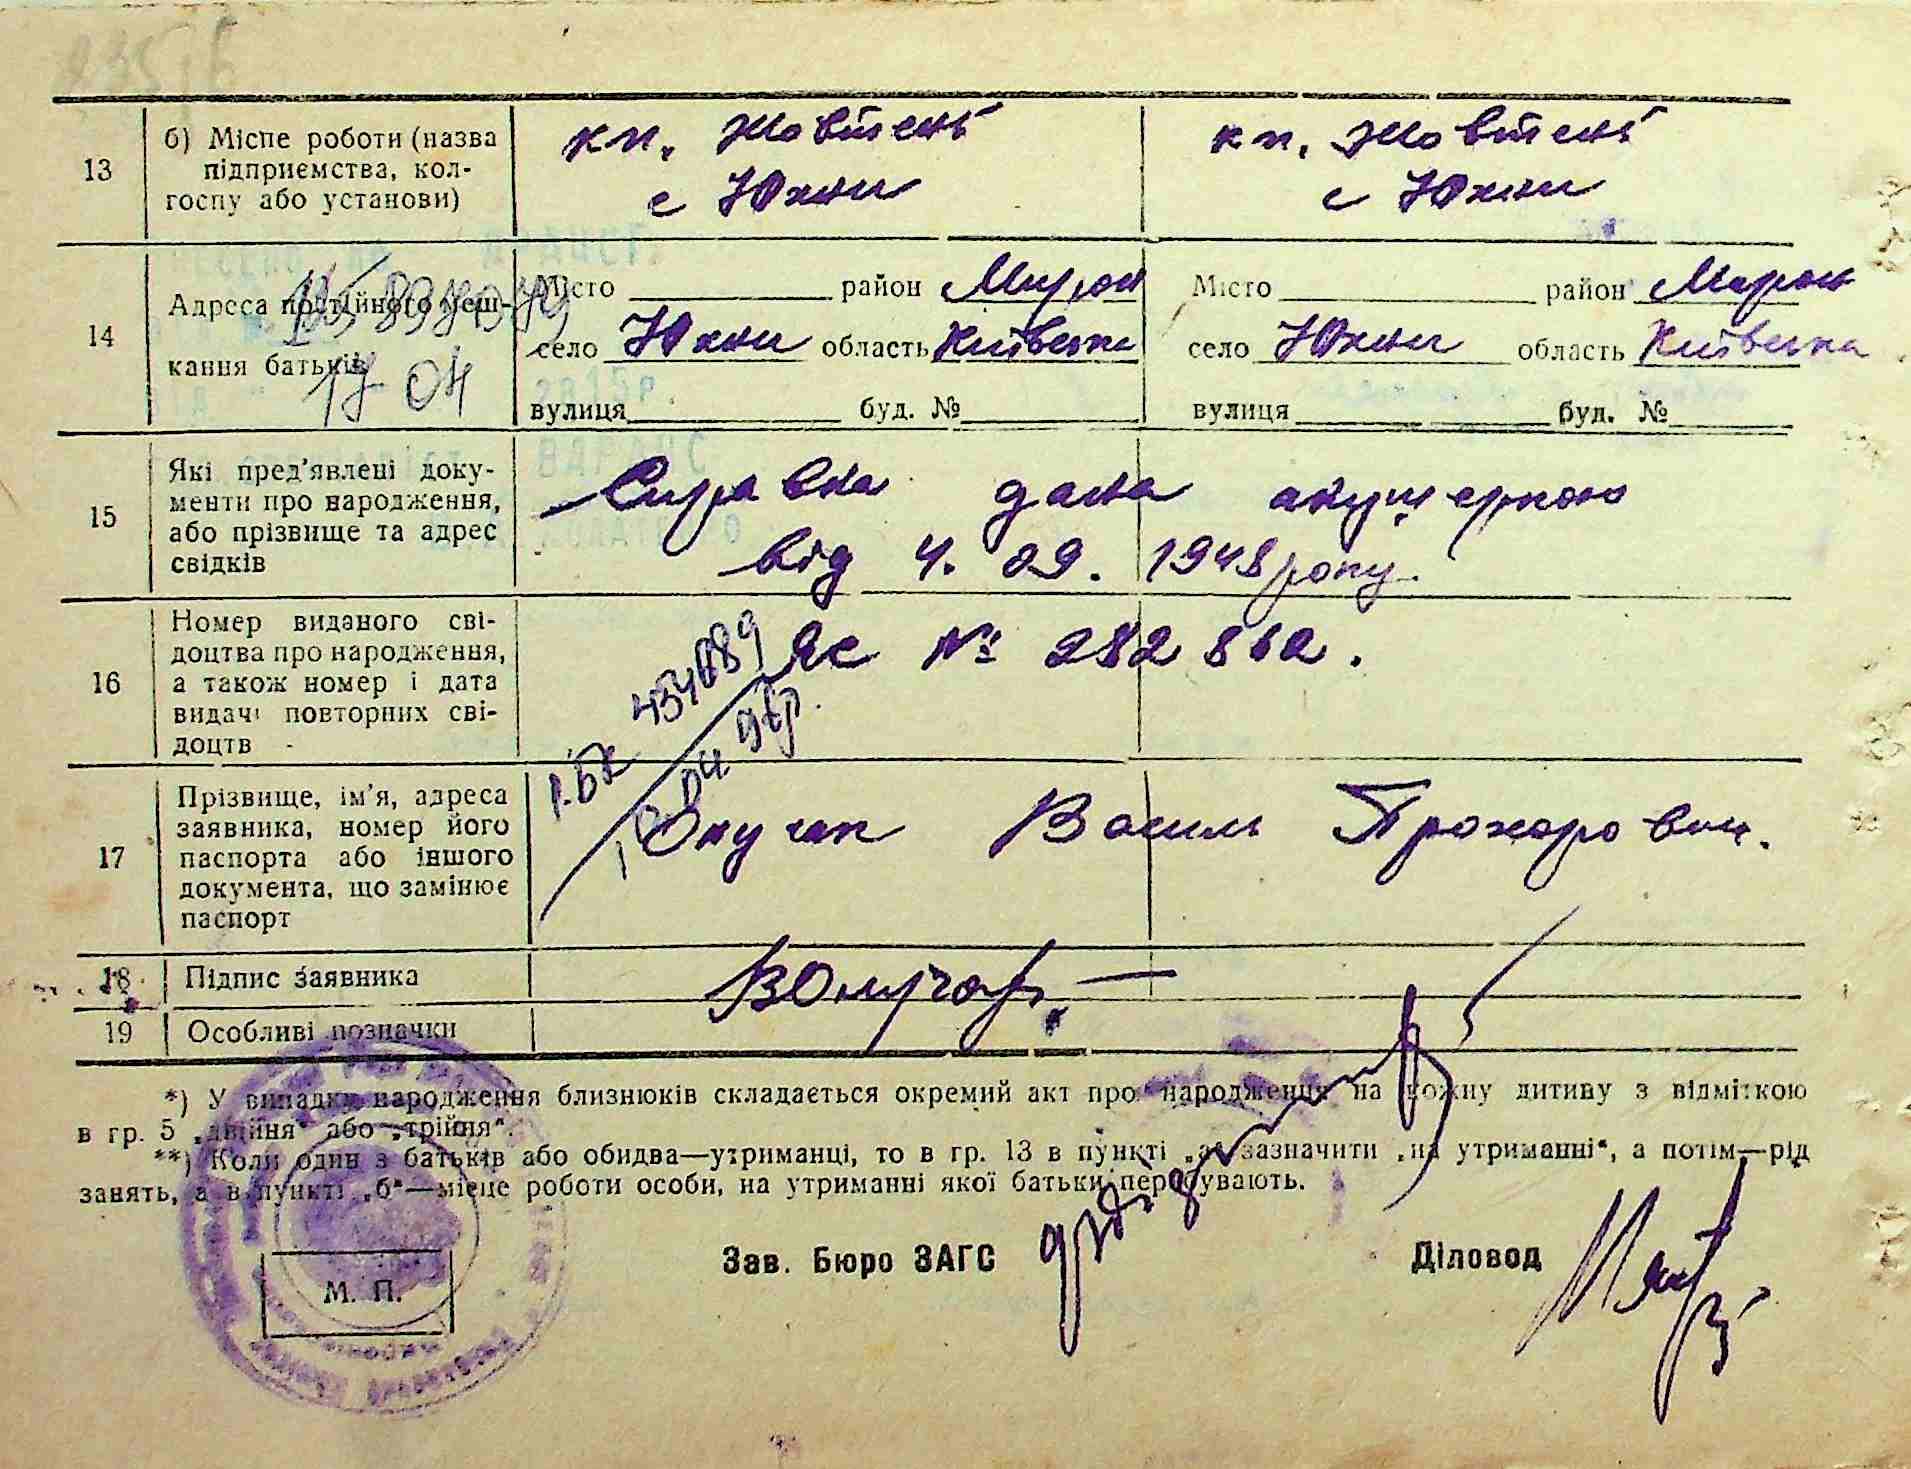 13
б) Місце роботи (назва
підприємства, кол-
госпу або установи)
кп. Жовтень
с Юхни
кп. Жовтень
с Юхни
14
Адреса постійного меш-
кання батьків
17 04
Місто район Мирон
село Юхни область Київська
вулиця буд. №
Місто район Мирон
село Юхни область Київська
вулиця буд. №
15
Які пред'явлені доку-
менти про народження,
або прізвище та адрес
свідків
Справка дана акушеркою
від 4. 09. 1948 року.
16
Номер виданого сві-
доцтва про народження,
а також номер і дата
видачі повторних сві-
доцтв -
ЯС № 282862.
17
Прізвище, ім'я, адреса
заявника, номер його
паспорта або іншого
документа, що замінює
паспорт
Василь Прохорович.
18
Підпис заявника
19
Особливі позначки
*) У випадку народження близнюків складається окремий акт про народження на кожну дитину з відміткою
в гр. 5 „двійня“ або „трійня“.
**) Коли один з батьків або обидва—утриманці, то в гр. 13 в пункті „а“ зазначити „на утриманні“, а потім—рід
занять, а в пункті „б“—місце роботи особи, на утриманні якої батьки перебувають.
Зав. Бюро ЗАГС
Діловод
М. П.